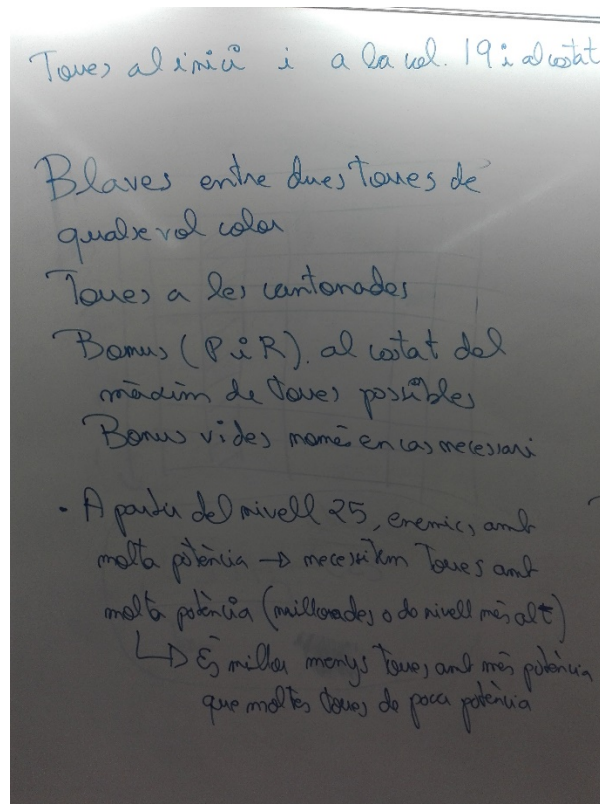 Torres al inici i a la col. 19 i al costat
Blaves entre dues torres de
qualsevol color
Torres a les cantonades
Bonus (P i R). al costat del
màxim de torres possibles
Bonus vides només en cas necessari
· A partir del nivell 25, enemics amb
molta potència → necessitem torres amb
molta potència (millorades o de nivell més alt)
↳ És millor menys torres amb més potència
que moltes torres de poca potència